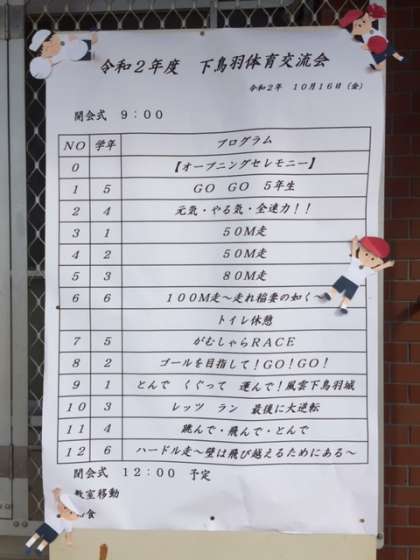 令和２年度　下鳥羽体育交流会
令和２年　１０月１６日（金）
開会式　９：００
ＮＯ 学年 プログラム
０ 【オープニングセレモニー】
１ ５ ＧＯ　ＧＯ　５年生
２ ４ 元気・やる気・全速力！！
３ １ ５０Ｍ走
４ ２ ５０Ｍ走
５ ３ ８０Ｍ走
６ ６ １００Ｍ走～走れ稲妻の如く～
トイレ休憩
７ ５ がむしゃらＲＡＣＥ
８ ２ ゴールを目指して！ＧＯ！ＧＯ！
９ １ とんで　くぐって　運んで！風雲下鳥羽城
１０ ３ レッツ　ラン　最後に大逆転
１１ ４ 跳んで・飛んで・とんで
１２ ６ ハードル走～壁は飛び越えるためにある～
閉会式　１２：００　予定
教室移動
食